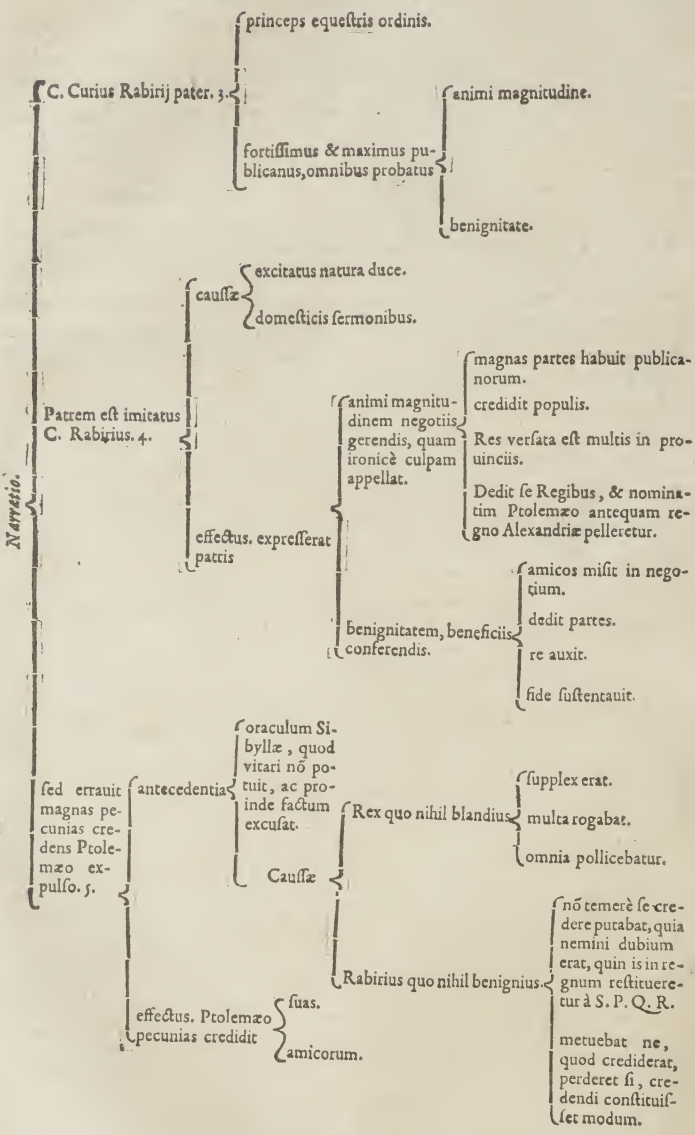 Narratio.
C. Curius Rabirij pater. 3.
princeps equeſtris ordinis.
fortiſſimus & maximus pu-
blicanus, omnibus probatus
animi magnitudine.
benignitate.
Patrem eſt imitatus
C. Rabirius. 4.
cauſſæ
excitatus natura duce.
domeſticis ſermonibus.
effectus. expreſſerat
patris
animi magnitu-
dinem negotiis
gerendis, quam
ironicè culpam
appellat.
magnas partes habuit publica-
norum.
credidit populis.
Res verſata eſt multis in pro-
uinciis.
Dedit ſe Regibus, & nomina-
tim Ptolemæo antequam re-
gno Alexandriæ pelleretur.
benignitatem, beneficiis
conferendis.
amicos miſit in nego-
tium.
dedit partes.
re auxit.
fide ſuſtentauit.
ſed errauit
magnas pe-
cunias cre-
dens Ptole-
mæo ex-
pulſo. 5.
antecedentia
oraculum Si-
byllæ, quod
vitari nõ po-
tuit, ac pro-
inde factum
excuſat.
Cauſſæ
Rex quo nihil blandius
ſupplex erat.
multa rogabat.
omnia pollicebatur.
Rabirius quo nihil benignius.
nõ temerè ſe cre-
dere putabat, quia
nemini dubium
erat, quin is in re-
gnum reſtituere-
tur à S. P. Q. R.
metuebat ne,
quod crediderat,
perderet ſi, cre-
dendi conſtituiſ-
ſet modum.
effectus. Ptolemæo
pecunias credidit
ſuas.
amicorum.